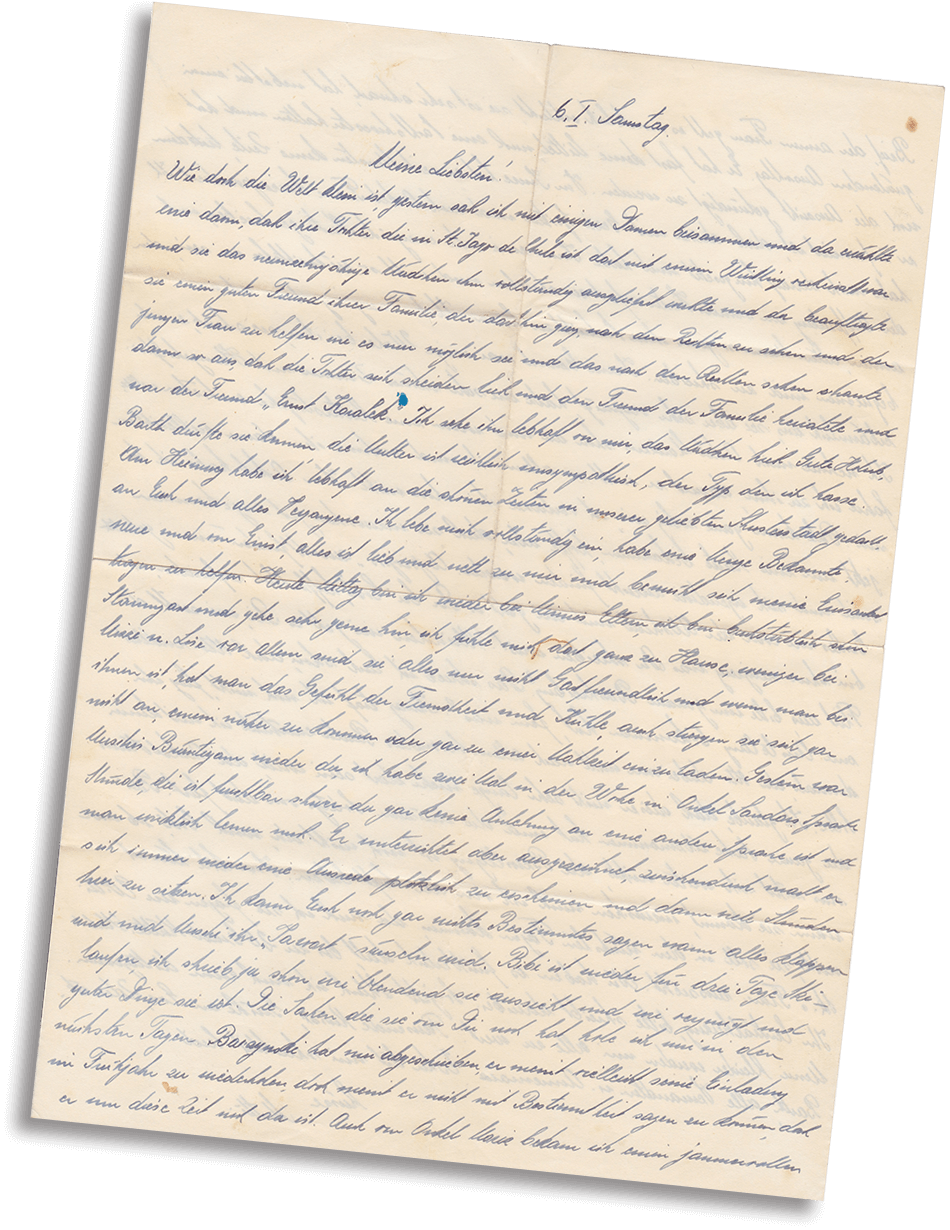 6. I. Samstag.
Meine Liebsten!
Wie doch die Welt klein ist, gestern sah ich mit einigen Damen beisammen und da erzählte
eine dann, daß ihre Tochter die in St. Jago de Chile ist dort mit einem Wüstling verheiratet war
und sie das neunzehnjährige Mädchen ihm vollständig ausgeliefert und der beauftragte
sie einen guten Freund ihrer Familie, der dorthin ging, nach dem Rechten zu sehen und der
jungen Frau zu helfen wie es nur möglich sei und das nach den Rechten sehen schaute
dann so aus, daß die Tochter sich scheiden ließ und den Freund der Familie heiratete und
war der Freund „Ernst Koralek". Ich sehe ihn lebhaft vor mir, das Mädchen hieß Gute
Barth dürfte sie kennen die Mutter ist reichlich unsympathisch, der Typ den ich hasse.
Am Heimweg habe ich lebhaft an die schönen Zeiten in unserer geliebten gedacht,
an Euch und alles Vergangene. Ich lebe mich vollständig ein, habe eine Menge Bekannte,
neue und von Ernst, alles ist lieb und nett zu mir und bemüht sich meine Einsamkeit
tragen zu helfen. Heute Mittag bin ich wieder bei Eltern, ich bin buchstäblich ihr
Stammgast und gehe sehr gerne hin, ich fühle mich dort ganz zu Hause, weniger bei
u. Lise vor allem sind sie alles nur nicht Gastfreundlich und wenn man bei
ihnen ist, hat man das Gefühl der Fremdheit und Kühle, auch strengen sie sich gar
nicht an, einem näher zu kommen oder gar zu einer Mahlzeit einzuladen. Gestern war
wieder da, ich habe zwei Mal in der Woche in Onkel Sandors Sprache
Stunde, die ist furchtbar schwer da gar keine Anlehnung an eine andere Sprache ist und
man wirklich lernen muß. Er unterrichtet aber ausgezeichnet, zwischendurch macht er
sich immer wieder eine Ausrede plötzlich zu erscheinen und dann viele Stunden
hier zu sitzen. Ich kann Euch noch gar nichts Bestimmtes sagen, wann alles klappen
wird und Muschi ihr „ " säuseln wird. Bibi ist wieder für drei Tage Ski-
laufen, ich schrieb ja schon wie blendend sie aussieht und wie vergnügt und
guter Dinge sie ist. Die Sachen die sie von Dir noch hat, hole ich mir in den
nächsten Tagen. hat mir abgeschrieben, er meint vielleicht seine Einladung
im Frühjahr zu wiederholen doch meint er nicht mit Bestimmtheit sagen zu können, daß
er um diese Zeit noch da ist. Auch von Onkel bekam ich einen jammervollen